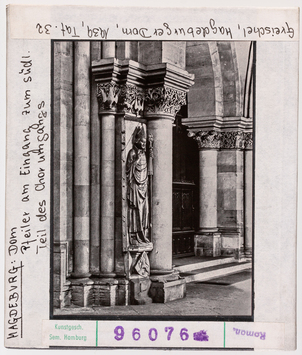 Greischel, Magdeburger Dom, 1939, Taf. 32
MAGDEBURG: DOM
Pfeiler am Eingang zum südl.
Teil des Chorumgangs
Kunstgesch.
Sem. Hamburg
96076
Roman.